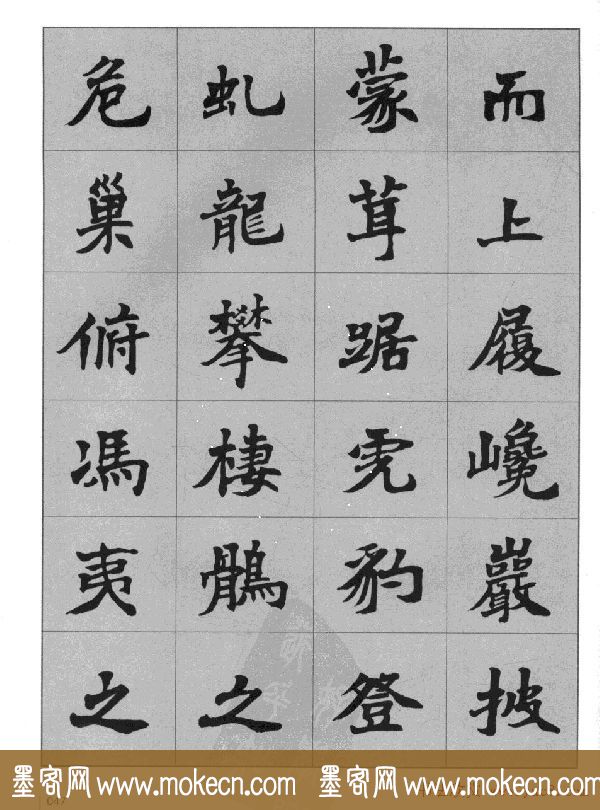 而上履巉巖披
蒙茸踞虎豹登
虬龍攀棲鶻之
危巢俯馮夷之
墨客网 www.mokecn.com 墨客网 www.mokecn.com